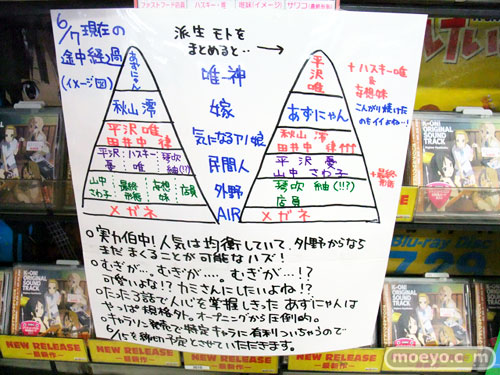 6/7現在の
途中経過
(イメージ図)
派生モトを
まとめると‥
唯一神
嫁
気になるアノ娘
民間人
外野
AIR
あずにゃん
秋山 澪
平沢 唯
田井中 律
平沢 憂
ハスキー 唯
琴吹 紬(!!)
山中 さわ子
最終形態
妄想 妹
店員
メガネ
平沢 唯
あずにゃん
秋山 澪
田井中 律
平沢 憂
山中 さわ子
琴吹 紬(!!?)
店員
メガネ
+ハスキー唯
&
妄想妹
こんがり焼けた
のもイイよねー!
+最終
形態
○実力伯中!人気は均衡していて、外野からなら
まだまくることが可能なハズ!
○むぎが…、むぎが……、むぎが…!?
可愛いよな!?カミさんにしたいよね!?
○たった3話で人心を掌握しきったあずにゃんは
やっぱ規格外。オープニングから圧倒的。
○キャラソン発売で特定キャラに有利ついちゃうので
締切予定とさせていただきます。
K-ON!
ORIGINAL
SOUND
TRACK
K-ON!
ORIGINAL SOUND
TRACK
Blu-ray Disc
NEW RELEASE
最新作
NEW RELEASE
最新作
moeyo.com